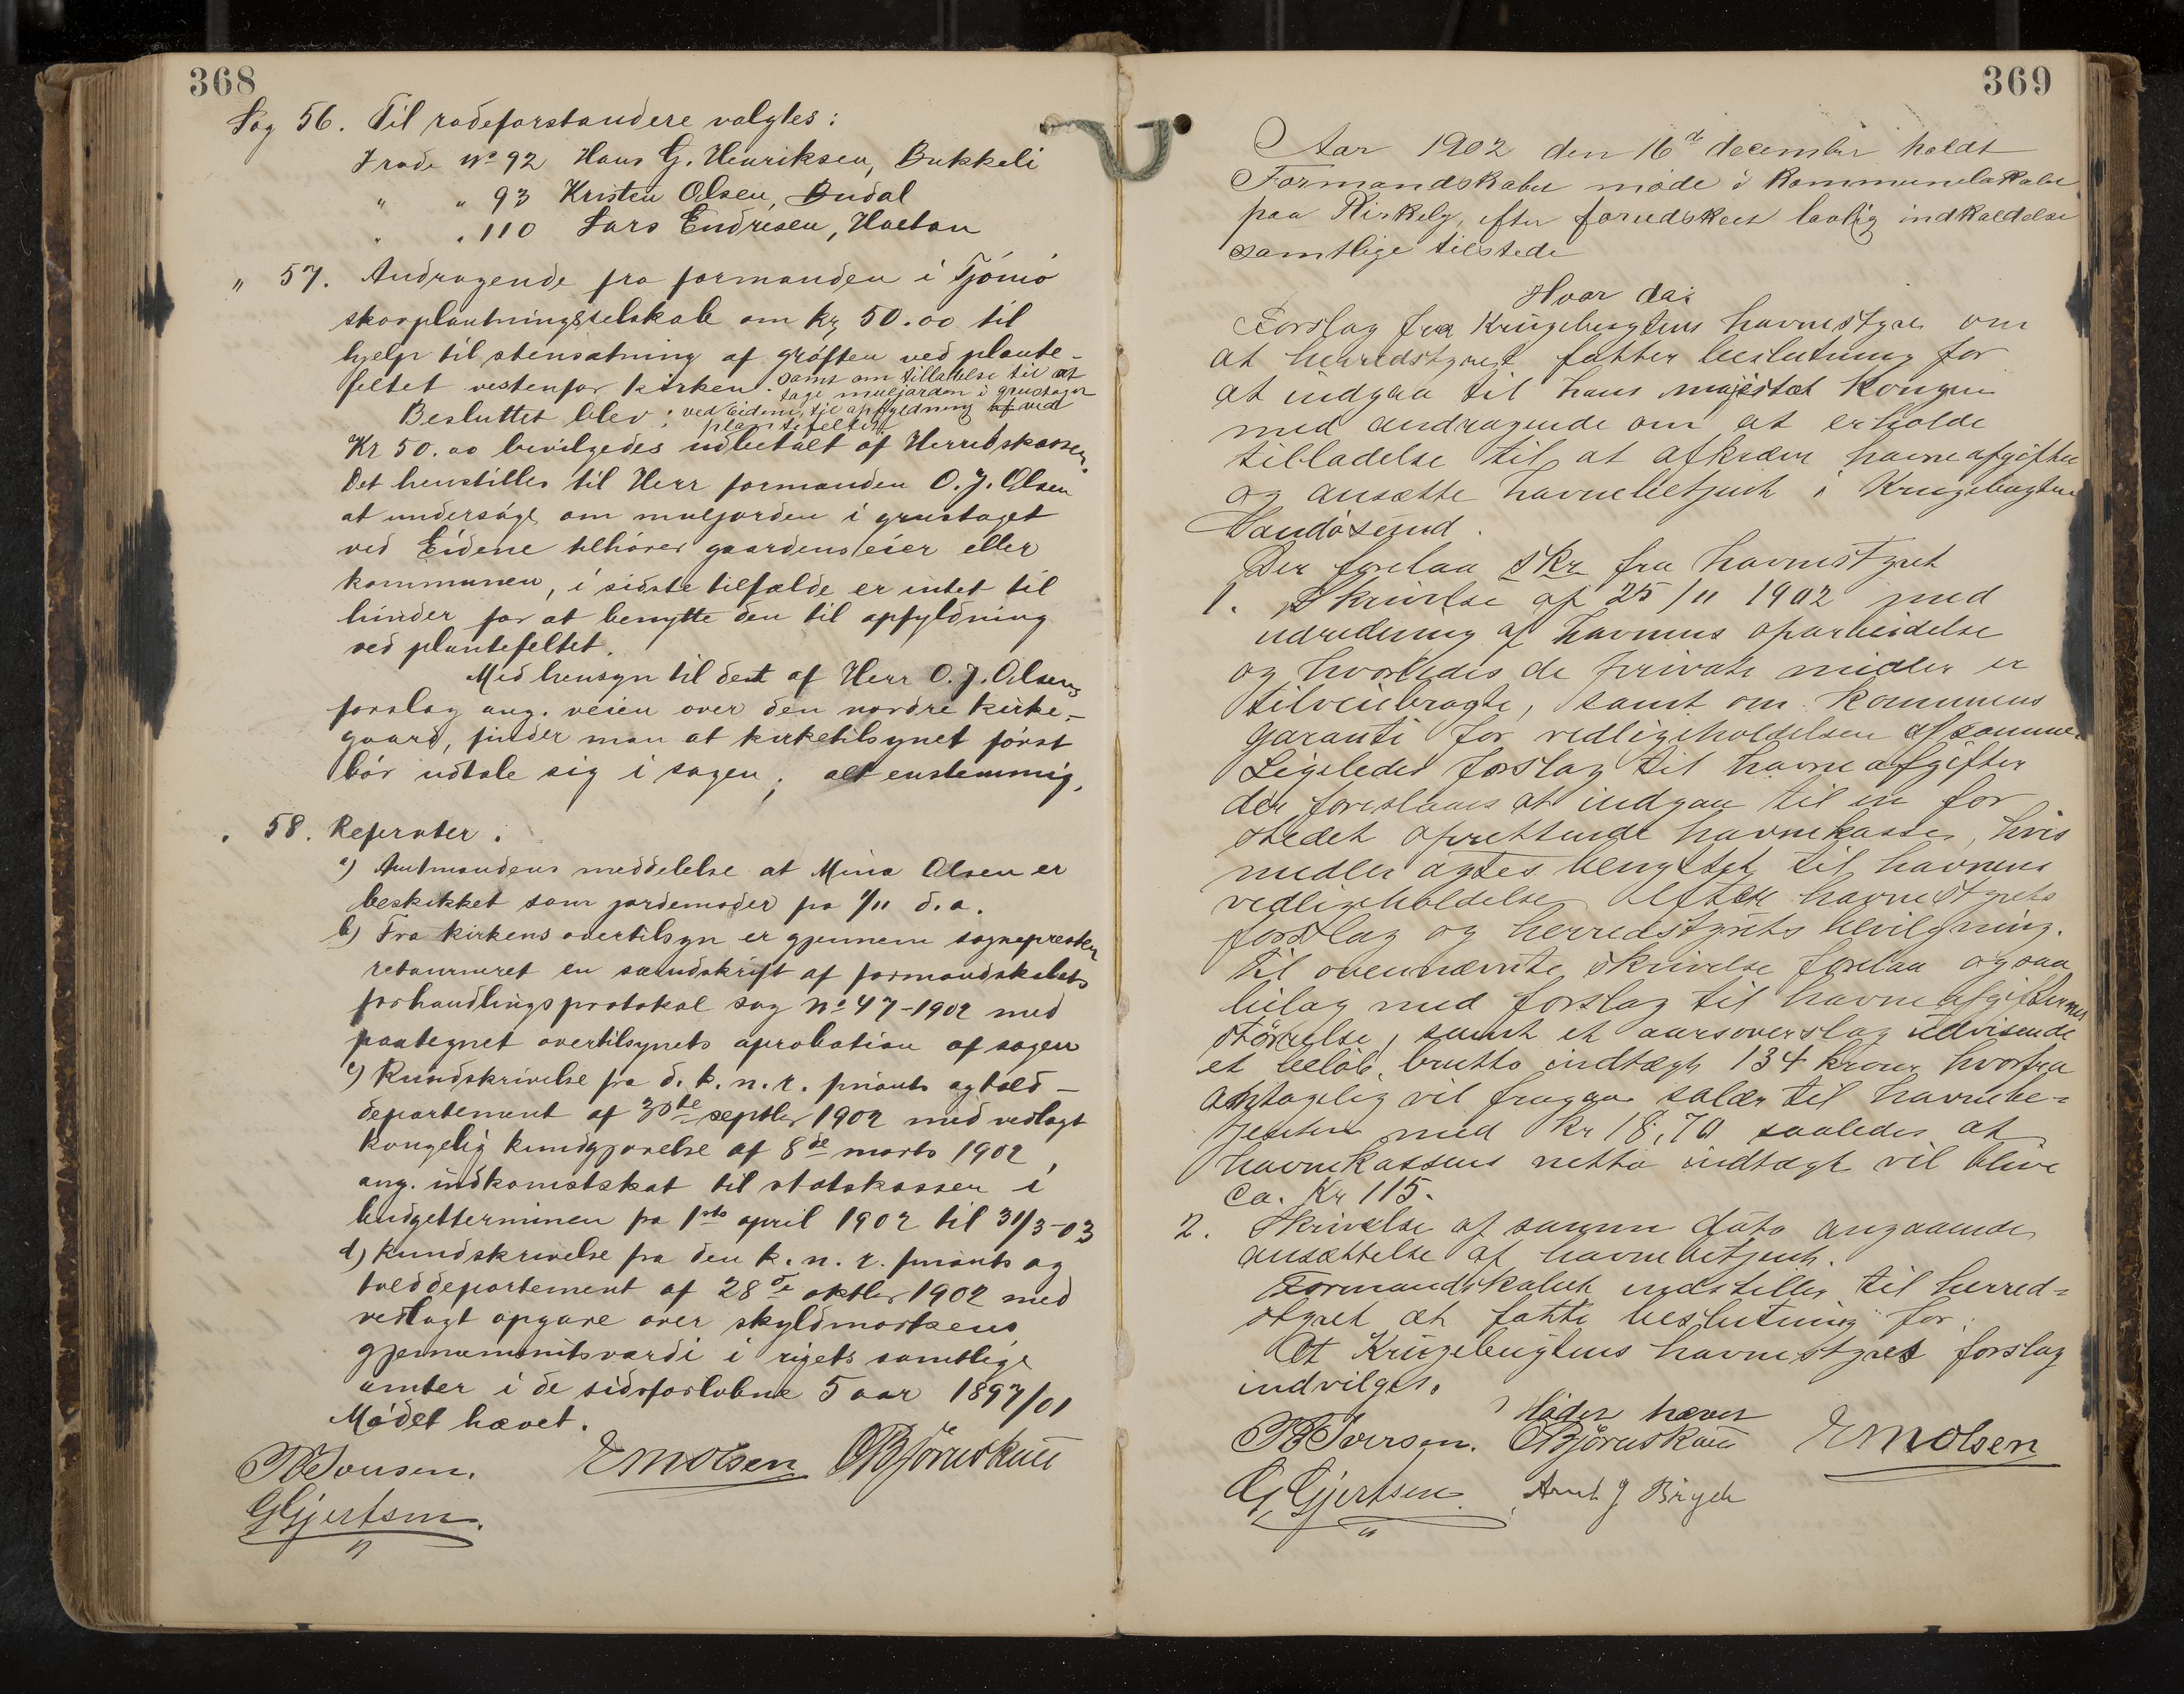 368
Sag 56. Til rodeforstandere valgtes:
I rode No 92 Hans G. Henriksen, Bukkeli
" " 93 Kristen Olsen, Budal
" " 110 Lars Endresen, Haetan
" 57. Andragende fra formanden i Tjømø
skovplantningsselskab om kr 50.00 til
hjelp til stensætning af grøften ved plante-
feltet vestenfor kirken. samt om tilladelse til at
tage muljorden i grustaget
Besluttet blev: ved Eidene, til opfyldning af ved
plantefeltet.
Kr 50.00 bevilgedes udbetalt af Herredskassen.
Det henstilles til Herr formanden O. J. Olsen
at undersøge om muljorden i grustaget
ved Eidene tilhører gaardens eier eller
kommunen, i sidste tilfælde er intet til
hinder for at benytte den til opfyldning
ved plantefeltet.
Med hensyn til det af Herr O. J. Olsens
forslag ang. veien over den nordre kirke-
gaard, finder man at kirketilsynet først
bør udtale sig i sagen; alt enstemmig.
" 58. Referater.
a) Amtmandens meddelelse at Mina Olsen er
beskikket som jordemoder fra 1/11 d.a.
b) Fra kirkens overtilsyn er gjennem sognepresten
retourneret en særudskrift af formandskabets
forhandlingsprotokol sag No 47-1902 med
paategnet overtilsynets aprobation af sagen
c) Rundskrivelse fra d. k. n. r. finants og told-
departement af 30te septbr 1902 med vedlagt
kongelig kundgjørelse af 8de marts 1902,
ang. indkomstskat til statskassen i
budgetterminen fra 1ste april 1902 til 31/3-03
d) Rundskrivelse fra den k. n. r. finants og
tolddepartement af 28de oktbr 1902 med
vedlagt opgave over skyldmarkens
gjennemsnitsværdi i rigets samtlige
amter i de sidsforløbne 5 aar 1897/01
Mødet hævet.
Emolsen OBjørnskau
G Gjertsen.
369
Aar 1902 den 16de december holdt
Formandskabet møde i kommunelokalet
paa Kirkely, efter forudskeet lovlig indkaldelse
samtlige tilstede
Hvor da:
Forslag fra Krugebugtens havnestyre om
at herredstyret fatter beslutning for
at indgaa til hans majestæt Kongen
med andragende om at erholde
tilladelse til at afkræve havneafgifter
og ansætte havnebetjent i Krugebugten
Vandøsund.
Der forelaa skr fra havnestyret
1. Skrivelse af 25/11 1902 med
udredning af havnens oparbeidelse
og hvorledes de private midler er
tilveiebragte, samt om kommunens
garanti for vedligeholdelsen af samme.
Ligeledes forslag til havneafgifter
der foreslaaes at indgaa til en for
stedet oprettende havnekasse, hvis
midler agtes benyttet til havnens
vedligeholdelse efter havnestyrets
forslag og herredstyrets bevilgning.
Til ovennævnte skrivelse forelaa ogsaa
bilag med forslag til havneafgifternes
størrelse, samt et aarsoverslag udvisende
et beløb, brutto indtægt 134 kroner hvorfra
antagelig vil fragaa salær til havnebe-
tjenten med kr 18,70 saaledes at
havnekassens netto indtægt vil blive
ca. Kr 115.
2. Skrivelse af samme dato angaaende
ansættelse af havnebetjent.
Formandskabet indstiller til herred-
styret at fatte beslutning for:
At Krugebugtens havnestyres forslag
indvilges.
Mødet hævet
Iversen. OBjørnskau Emolsen
G. Gjertsen.